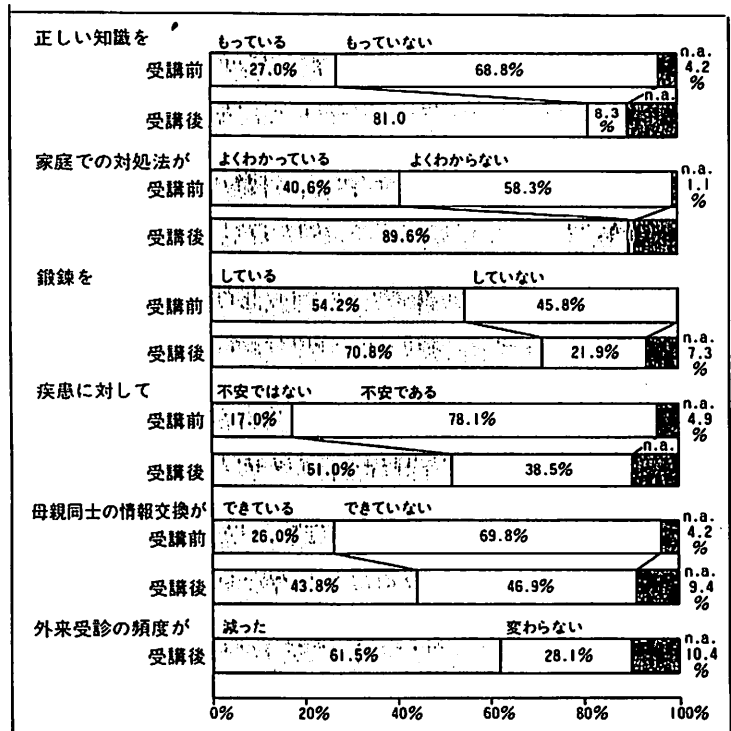 正しい知識を
もっている もっていない
受講前 27.0% 68.8% n.a. 4.2 %
受講後 81.0 8.3 % n.a.
家庭での対処法が よくわかっている よくわからない
受講前 40.6% 58.3% n.a. 1.1 %
受講後 89.6%
鍛錬を している していない
受講前 54.2% 45.8%
受講後 70.8% 21.9% n.a. 7.3 %
疾患に対して 不安ではない 不安である
受講前 17.0% 78.1% n.a. 4.9 %
受講後 51.0% 38.5% n.a.
母親同士の情報交換が できている できていない
受講前 26.0% 69.8% n.a. 4.2 %
受講後 43.8% 46.9% n.a. 9.4 %
外来受診の頻度が 減った 変わらない
受講後 61.5% 28.1% n.a. 10.4 %
0% 20% 40% 60% 80% 100%